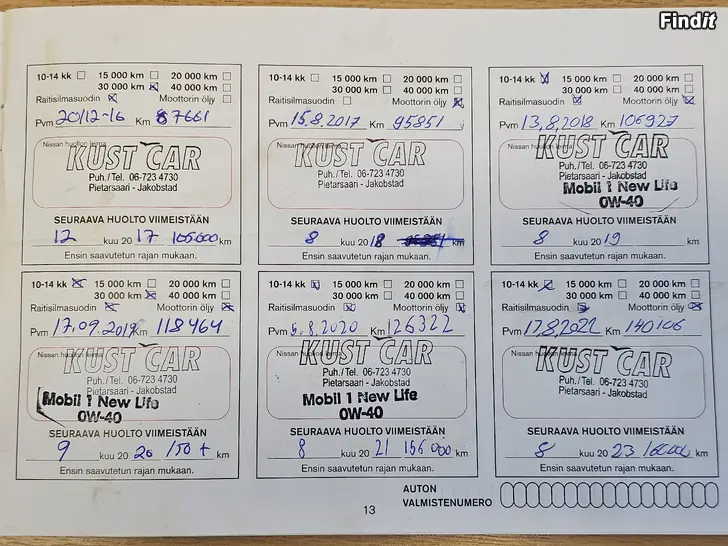 Findit
10-14 kk 15 000 km 20 000 km
30 000 km 40 000 km
Raitisilmasuodin Moottorin öljy
Pvm 20/12-16 Km 87661
Nissan huollon leima
KUST CAR
Puh./Tel. 06-723 4730
Pietarsaari - Jakobstad
SEURAAVA HUOLTO VIIMEISTÄÄN
12 kuu 20 17 105000 km
Ensin saavutetun rajan mukaan.
10-14 kk 15 000 km 20 000 km
30 000 km 40 000 km
Raitisilmasuodin Moottorin öljy
Pvm 15.8.2017 Km 95851
Nissan huollon leima
KUST CAR
Puh./Tel. 06-723 4730
Pietarsaari - Jakobstad
SEURAAVA HUOLTO VIIMEISTÄÄN
8 kuu 20 18 km
Ensin saavutetun rajan mukaan.
10-14 kk 15 000 km 20 000 km
30 000 km 40 000 km
Raitisilmasuodin Moottorin öljy
Pvm 13.8.2018 Km 106927
Nissan huollon leima
KUST CAR
Puh./Tel. 06-723 4730
Pietarsaari - Jakobstad
Mobil 1 New Life
0W-40
SEURAAVA HUOLTO VIIMEISTÄÄN
8 kuu 20 19 km
Ensin saavutetun rajan mukaan.
10-14 kk 15 000 km 20 000 km
30 000 km 40 000 km
Raitisilmasuodin Moottorin öljy
Pvm 17.09.2019 Km 118464
Nissan huollon leima
KUST CAR
Puh./Tel. 06-723 4730
Pietarsaari - Jakobstad
Mobil 1 New Life
0W-40
SEURAAVA HUOLTO VIIMEISTÄÄN
9 kuu 20 20 150 t km
Ensin saavutetun rajan mukaan.
10-14 kk 15 000 km 20 000 km
30 000 km 40 000 km
Raitisilmasuodin Moottorin öljy
Pvm 5.8.2020 Km 126322
Nissan huollon leima
KUST CAR
Puh./Tel. 06-723 4730
Pietarsaari - Jakobstad
Mobil 1 New Life
0W-40
SEURAAVA HUOLTO VIIMEISTÄÄN
8 kuu 20 21 156000 km
Ensin saavutetun rajan mukaan.
10-14 kk 15 000 km 20 000 km
30 000 km 40 000 km
Raitisilmasuodin Moottorin öljy
Pvm 17.8.2022 Km 140106
Nissan huollon leima
KUST CAR
Puh./Tel. 06-723 4730
Pietarsaari - Jakobstad
SEURAAVA HUOLTO VIIMEISTÄÄN
8 kuu 20 23 km
Ensin saavutetun rajan mukaan.
13
AUTON
VALMISTENUMERO